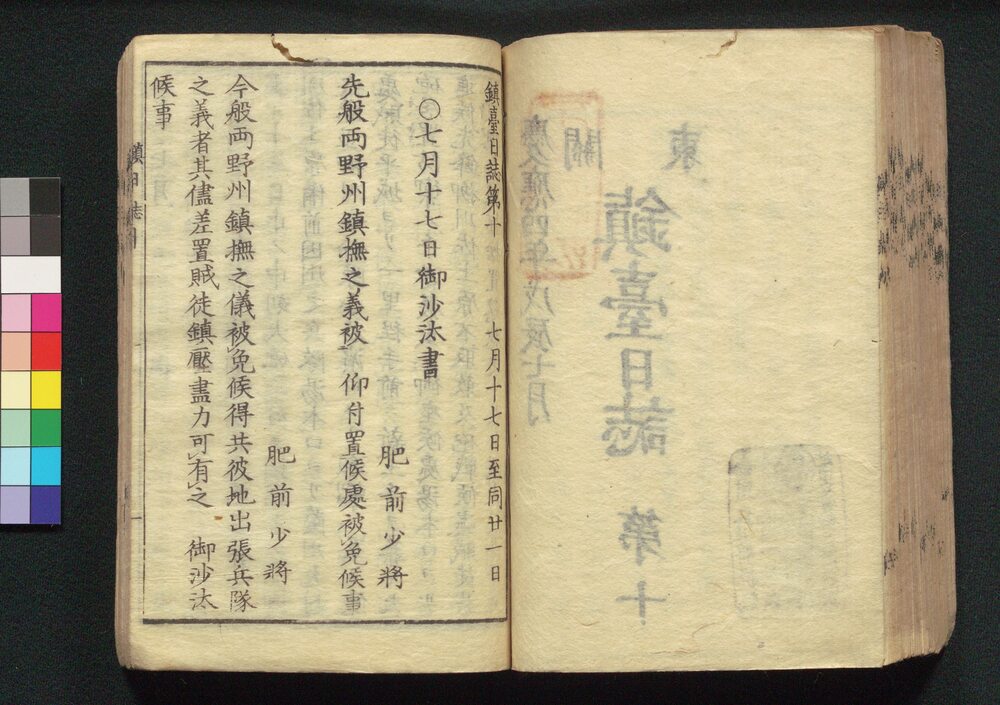 東
關
鎮臺日誌 第十
慶應四年戊辰七月
鎮臺日誌第十
七月十七日至同廿一日
○七月十七日御沙汰書
肥前少將
先般両野州鎮撫之義被 仰付置候處被免候事
肥前少將
今般両野州鎮撫之儀被免候得共彼地出張兵隊
之義者其儘差置賊徒鎮壓盡力可有之 御沙汰
候事